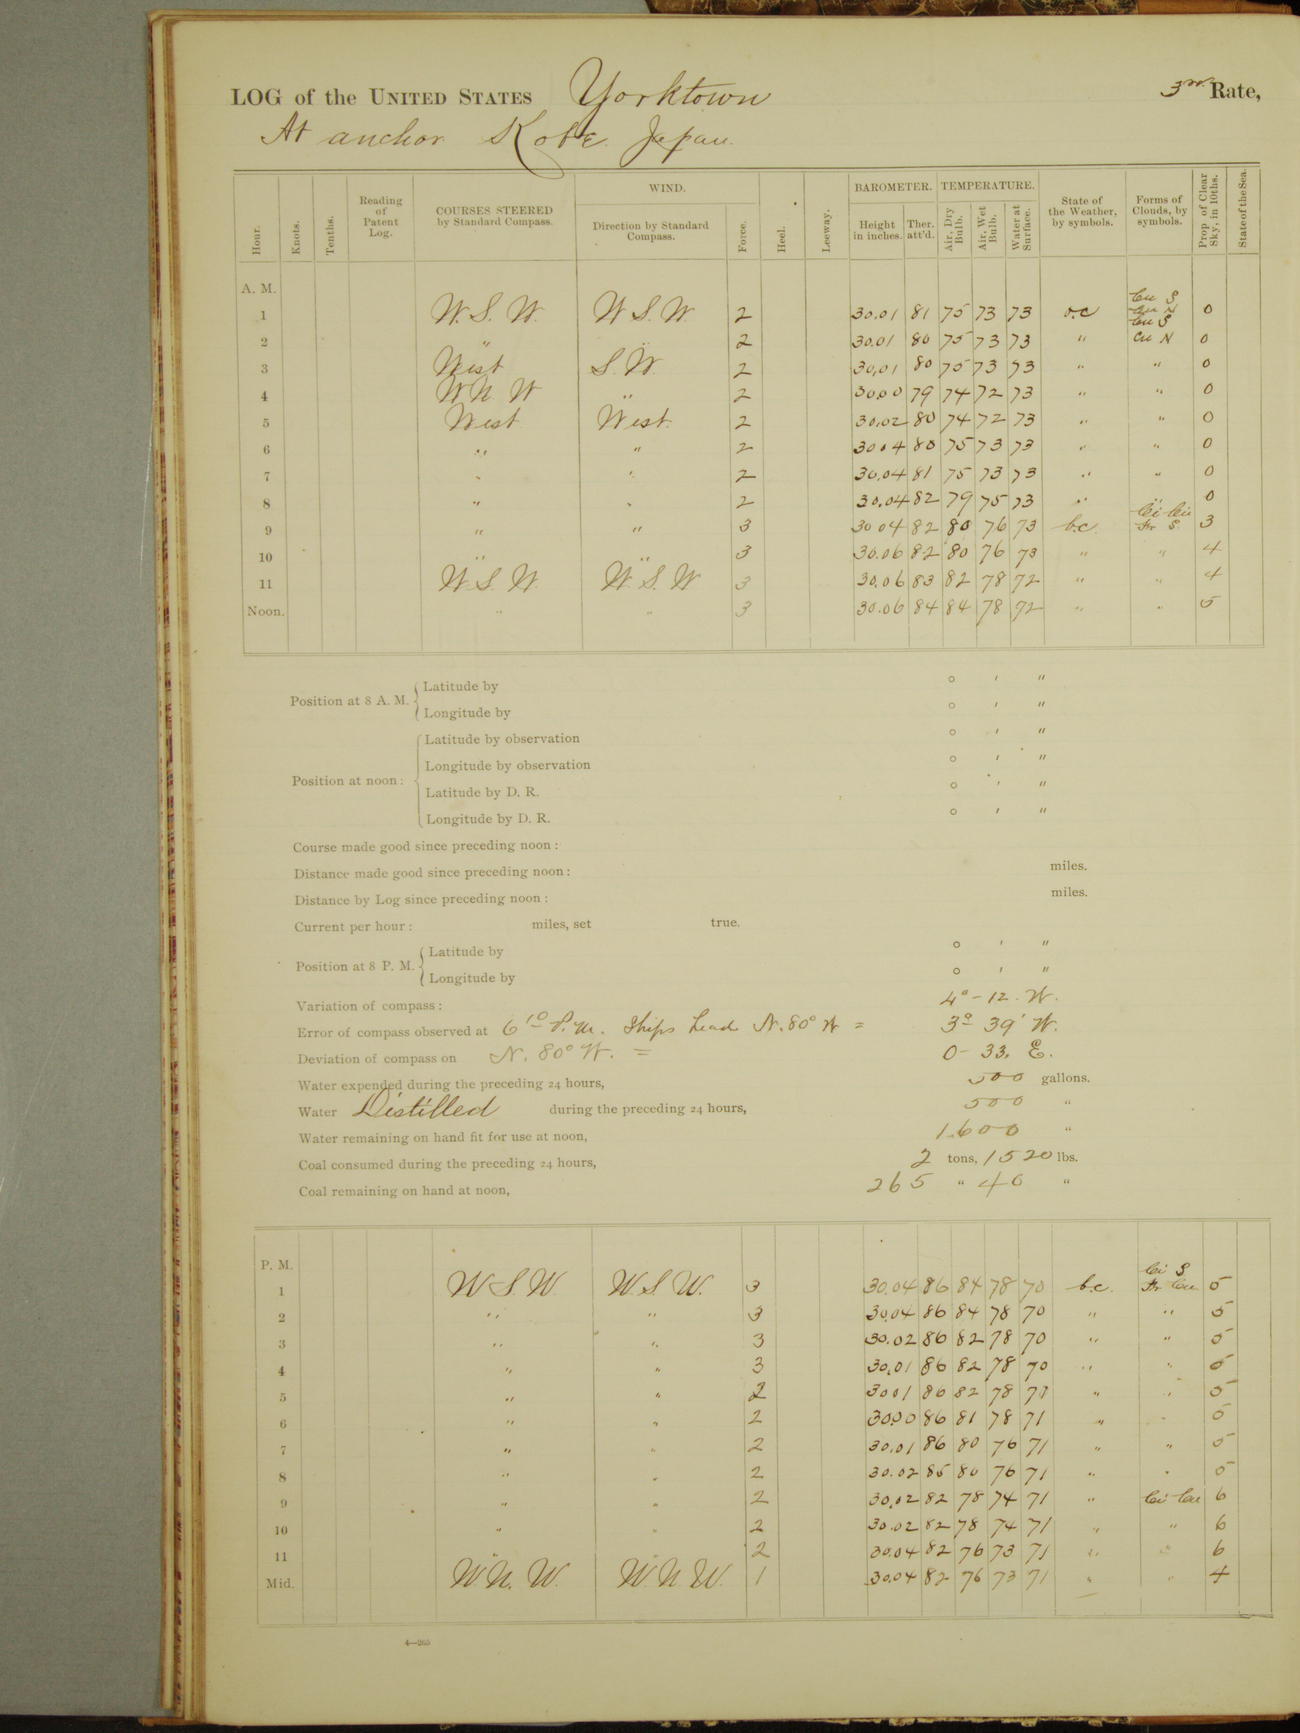 LOG of the UNITED STATES Yorktown 3rd Rate,
At anchor Kobe. Japan.
Hour. Knots. Tenths. Reading of Patent Log. COURSES STEERED by Standard Compass. WIND. Direction by Standard Compass. Force. Heel. Leeway. BAROMETER. Height in inches. Ther. att'd. TEMPERATURE. Air, Dry Bulb. Air, Wet Bulb. Water at Surface. State of the Weather, by symbols. Forms of Clouds, by symbols. Prop. of Clear Sky, in 10ths. State of the Sea.
A. M.
1 W.S.W. W S.W 2 30.01 81 75 73 73 o.c Cu S Cu N 0
2 " 2 30.01 80 75 73 73 " Cu S Cu N 0
3 West S.W 2 30.01 80 75 73 73 " " 0
4 W N W " 2 30.00 79 74 72 73 " " 0
5 West West. 2 30.02 80 74 72 73 " " 0
6 " " 2 30 04 80 75 73 73 " " 0
7 " " 2 30.04 81 75 73 73 " " 0
8 " " 2 30.04 82 79 75 73 " " 0
9 " " 3 30 04 82 80 76 73 b.c. Ci Cu Str S. 3
10 " " 3 30.06 82 80 76 73 " " 4
11 W.S.W. W.S.W 3 30.06 83 82 78 72 " " 4
Noon. " " 3 30.06 84 84 78 72 " " 5
Position at 8 A. M. Latitude by ° ' "
Longitude by ° ' "
Position at noon: Latitude by observation ° ' "
Longitude by observation ° ' "
Latitude by D. R. ° ' "
Longitude by D. R. ° ' "
Course made good since preceding noon:
Distance made good since preceding noon: miles.
Distance by Log since preceding noon: miles.
Current per hour: miles, set true.
Position at 8 P. M. Latitude by ° ' "
Longitude by ° ' "
Variation of compass: 4°-12. W.
Error of compass observed at 6 10 P.M. Ships head N. 80° W = 3° 39' W.
Deviation of compass on N. 80° W. = 0 - 33. E.
Water expended during the preceding 24 hours, 500 gallons.
Water Distilled during the preceding 24 hours, 500 "
Water remaining on hand fit for use at noon, 1.600 "
Coal consumed during the preceding 24 hours, 2 tons, 1520 lbs.
Coal remaining on hand at noon, 265 " 40 "
P. M.
1 W.S.W. W.S.W. 3 30.04 86 84 78 70 b.c. Ci S Str Cu 5
2 " " 3 30.04 86 84 78 70 " " 5
3 " " 3 30.02 86 82 78 70 " " 5
4 " " 3 30.01 86 82 78 70 " " 5
5 " " 2 30 01 86 82 78 71 " " 5
6 " " 2 30.00 86 81 78 71 " " 5
7 " " 2 30.01 86 80 76 71 " " 5
8 " " 2 30.02 85 80 76 71 " " 5
9 " " 2 30.02 82 78 74 71 " Ci Cu 6
10 " " 2 30.02 82 78 74 71 " " 6
11 " " 2 30.04 82 76 73 71 " " 6
Mid. W.N.W. W.N W. 1 30.04 82 76 73 71 " " 4
4—265